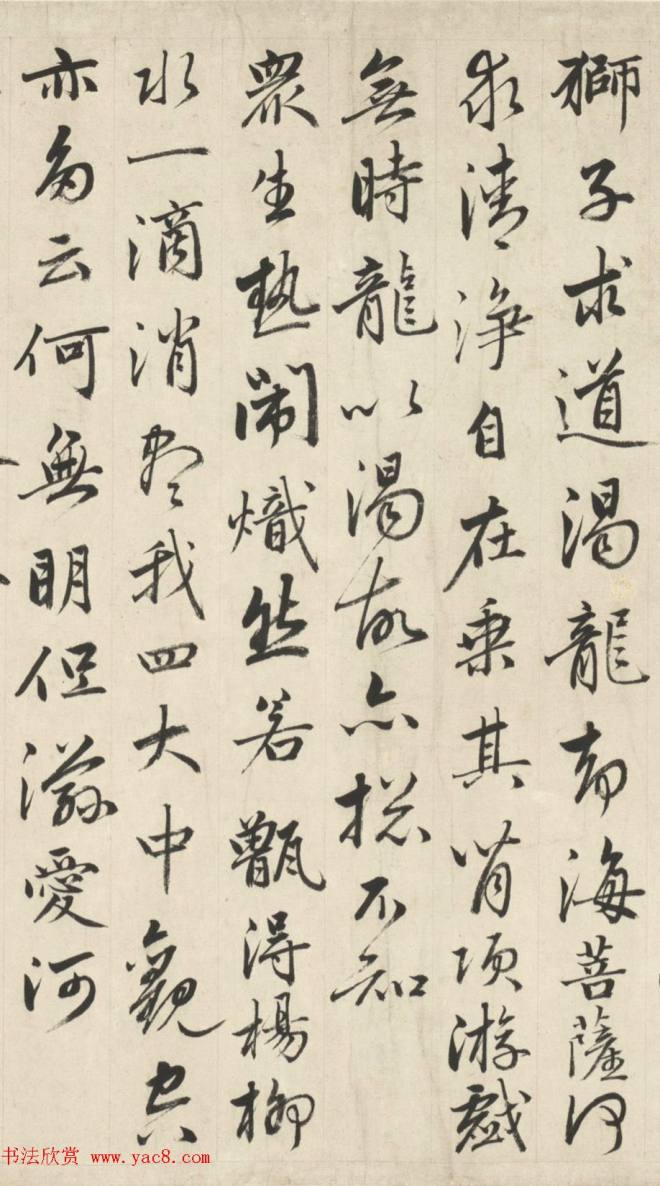 獅子求道渴龍劫海菩薩何
求清淨自在乘其背項游戲
無時龍以渴故亦擾不知
眾生熱鬧熾然若甑得楊柳
水一滴消盡我四大中觀空
亦多云何無明但滋愛河
书法欣赏 www.yac8.com